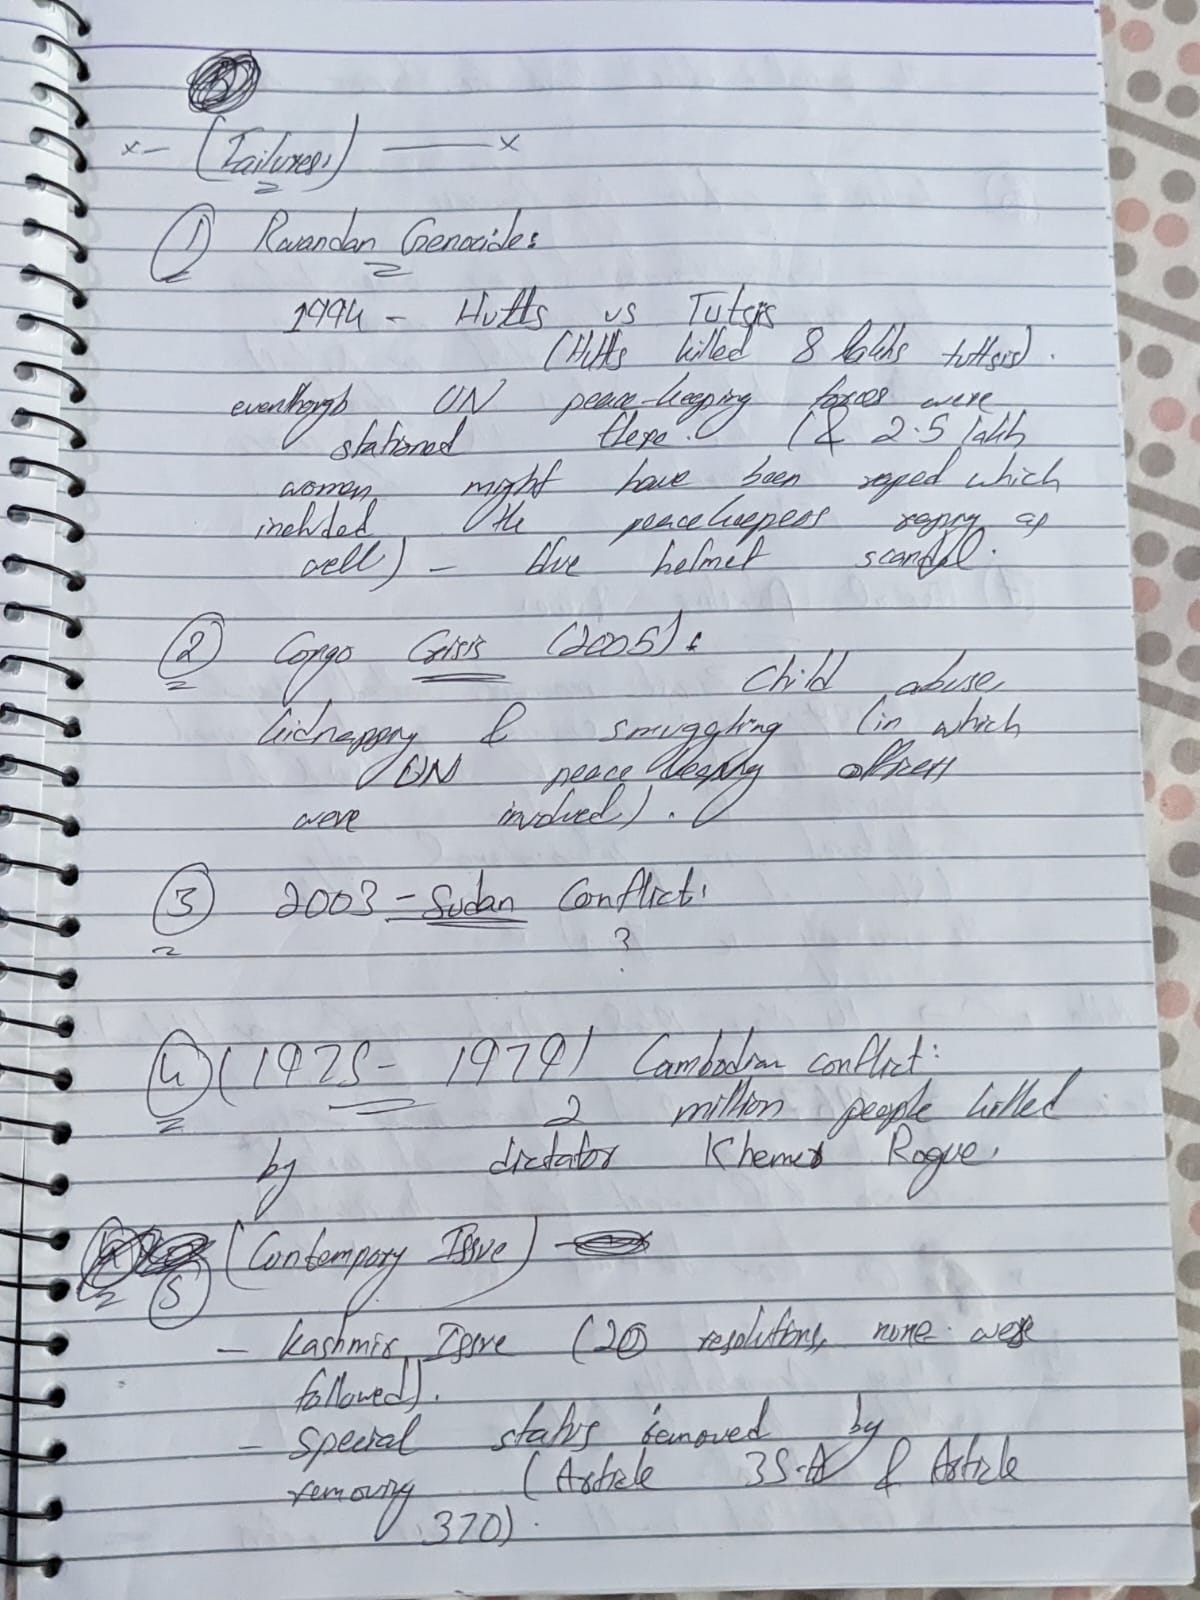 x- (Failures) —— x
① Rwandan Genocide:
1994 - Hutts vs Tutsis
(Hutts killed 8 lakhs tuttsis).
eventhough UN peace-keeping forces were
stationed there. (& 2.5 lakh
women might have been raped which
included the peacekeepers raping as
well) - blue helmet scandal.
② Congo Crisis (2005):
Child abuse,
kidnapping & smuggling (in which
UN peace keeping officers
were involved).
③ 2003 - Sudan Conflict:
?
④ (1975 - 1979) Cambodian conflict:
2 million people killed
by dictator Khemer Rogue.
⑤ (Contempory Issue) -
- Kashmir Issue (20 resolutions, none were
followed).
- special status removed by
removing (Article 35-A & Article
370).